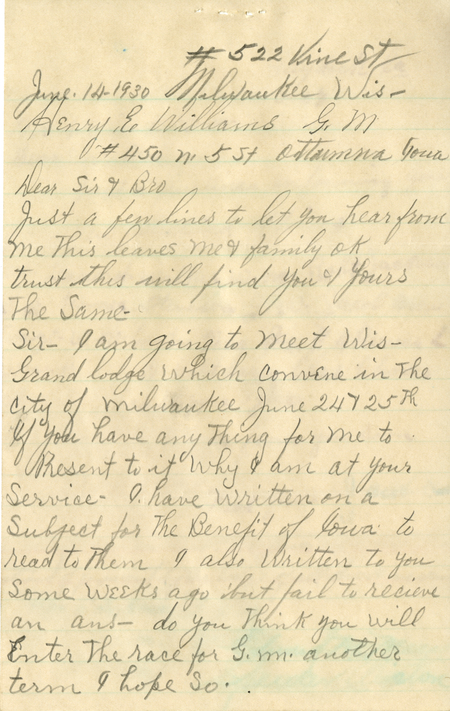 # 522 Vine St
June. 14-1930 Milwaukee Wis-
Henry E. Williams G. M
# 450 N. 5 St Ottumwa Iowa
Dear Sir & Bro
Just a few lines to let you hear from
me this leaves me & family ok
trust this will find you & yours
The Same-
Sir- I am going to meet Wis-
Grand lodge which convene in The
city of milwaukee June 24 & 25th
If you have any Thing for me to
Present to it Why I am at your
Service- I have written on a
Subject for The Benefit of Iowa to
read to Them I also written to you
Some weeks ago but fail to recieve
an ans- do you Think you will
Enter The race for G. m. another
term I hope So.